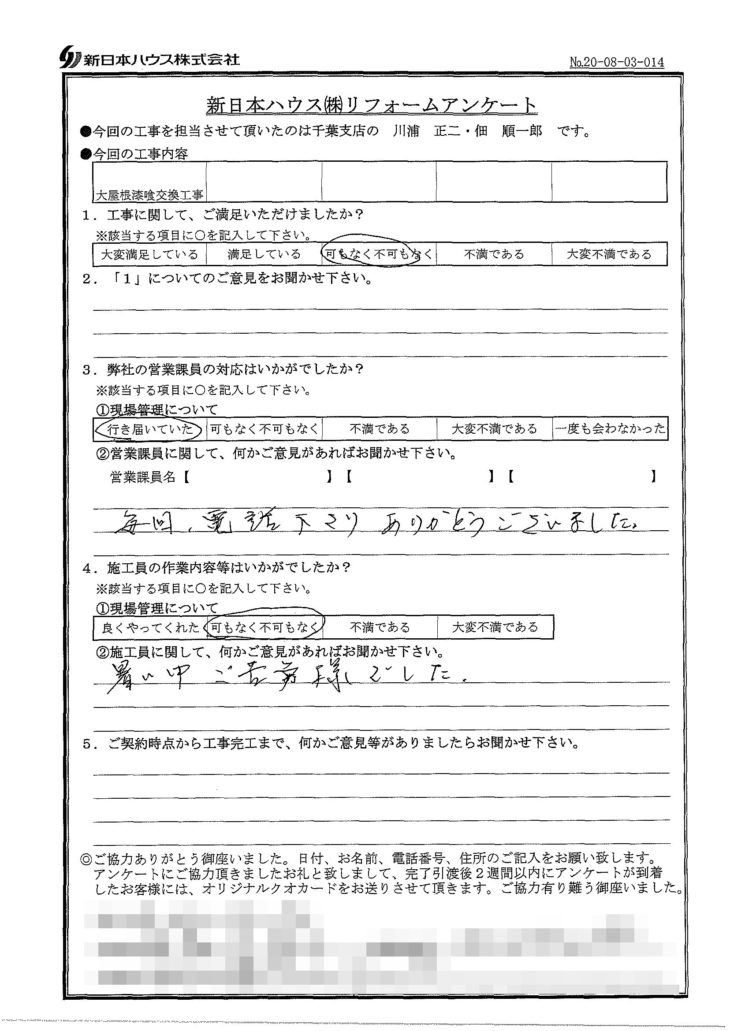 新日本ハウス株式会社
No.20-08-03-014
新日本ハウス㈱リフォームアンケート
●今回の工事を担当させて頂いたのは千葉支店の 川浦 正二・佃 順一郎 です。
●今回の工事内容
大屋根漆喰交換工事
1．工事に関して、ご満足いただけましたか？
※該当する項目に○を記入して下さい。
大変満足している 満足している 可もなく不可もなく 不満である 大変不満である
2．「1」についてのご意見をお聞かせ下さい。
3．弊社の営業課員の対応はいかがでしたか？
※該当する項目に○を記入して下さい。
①現場管理について
行き届いていた 可もなく不可もなく 不満である 大変不満である 一度も会わなかった
②営業課員に関して、何かご意見があればお聞かせ下さい。
営業課員名【 】【 】【 】
毎回、電話下さり ありがとうございました。
4．施工員の作業内容等はいかがでしたか？
※該当する項目に○を記入して下さい。
①現場管理について
良くやってくれた 可もなく不可もなく 不満である 大変不満である
②施工員に関して、何かご意見があればお聞かせ下さい。
暑い中 ご苦労様でした。
5．ご契約時点から工事完工まで、何かご意見等がありましたらお聞かせ下さい。
◎ご協力ありがとう御座いました。日付、お名前、電話番号、住所のご記入をお願い致します。
アンケートにご協力頂きましたお礼と致しまして、完了引渡後２週間以内にアンケートが到着
したお客様には、オリジナルクオカードをお送りさせて頂きます。ご協力有り難う御座いました。